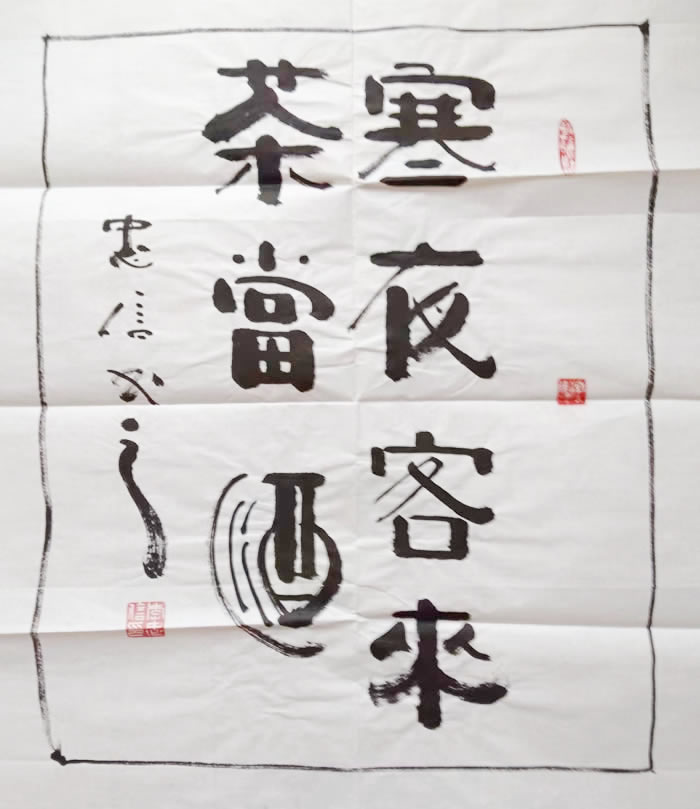 寒夜客來
茶當酒
忠信必之